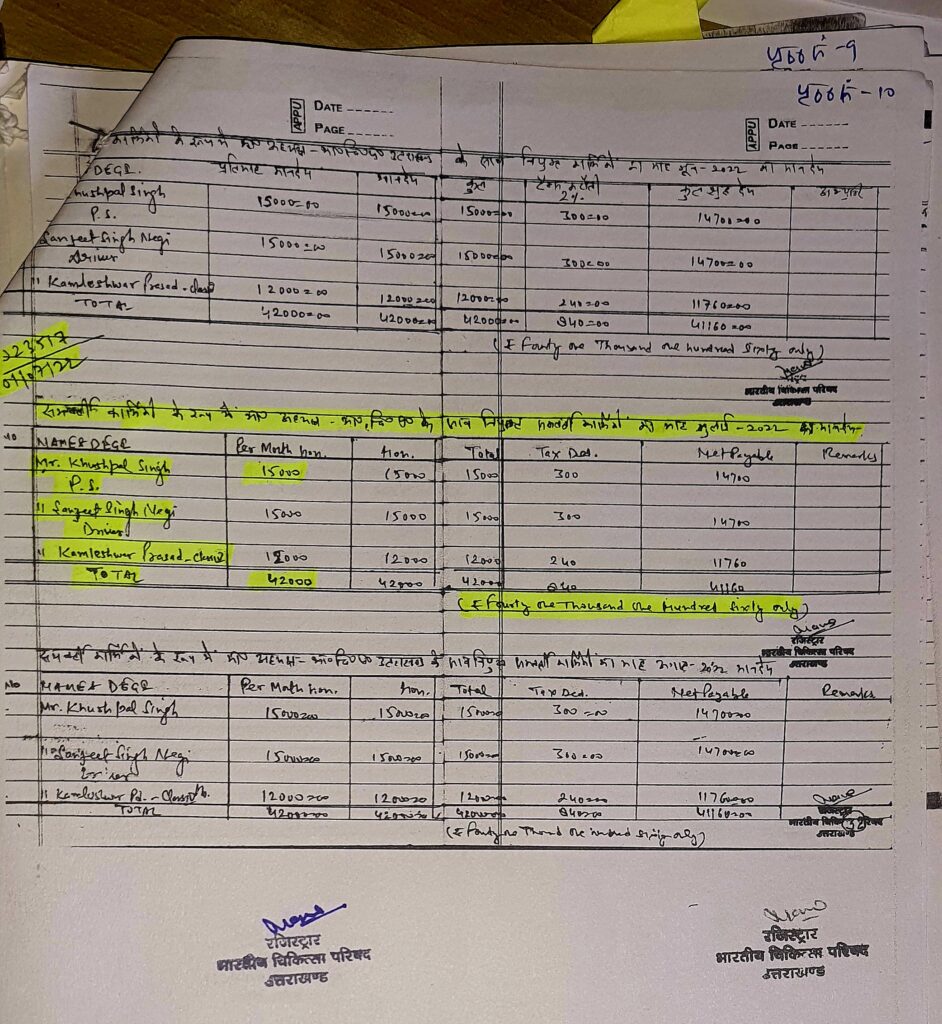 पृष्ठ - 9
पृष्ठ - 10
APPU DATE
PAGE
APPU DATE
PAGE
के साथ माह जून - 2022 का मानदेय
DEGR. प्रतिमाह मानदेय मानदेय कुल 2%. कुल शुद्ध देय
Khushpal Singh 15000=00 15000=00 15000=00 300=00 14700=00
P.S.
Sanjeet Singh Negi 15000=00 15000=00 15000=00 300=00 14700=00
Driver
" Kamleshwar Prasad - 12000=00 12000=00 12000=00 240=00 11760=00
TOTAL 42000=00 42000=00 42000=00 840=00 41160=00
(₹ Fourty one Thousand one hundred Sixty only)
भारतीय चिकित्सा परिषद
उत्तराखण्ड
कार्मिकों के रूप में के साथ कार्मिकों का माह जुलाई - 2022 का मानदेय
NO NAME & DEGR Per Math hon. Hon. Total Tax Ded. Net Payable Remarks
Mr. Khushpal Singh 15000 15000 15000 300 14700
P.S.
" Sanjeet Singh Negi 15000 15000 15000 300 14700
Driver
" Kamleshwar Prasad - 12000 12000 12000 240 11760
TOTAL 42000 42000 42000 840 41160
(₹ Fourty one Thousand one Hundred Sixty only)
रजिस्ट्रार
भारतीय चिकित्सा परिषद
उत्तराखण्ड
कार्मिकों के रूप में के साथ कार्मिकों का माह - 2022 मानदेय
No NAME & DEGR Per Math hon. Hon. Total Tax Ded. Net Payable Remarks
Mr. Khushpal Singh 15000=00 15000=00 15000 300=00 14700=00
" Sanjeet Singh Negi 15000=00 15000=00 15000 300=00 14700=00
Driver
" Kamleshwar Pd. - 12000=00 12000=00 12000 240=00 11760=00
TOTAL 42000=00 42000=00 42000 840=00 41160=00
रजिस्ट्रार
भारतीय परिषद
उत्तराखण्ड
(₹ Fourty one one hundred Sixty only)
रजिस्ट्रार
भारतीय चिकित्सा परिषद
उत्तराखण्ड
रजिस्ट्रार
भारतीय चिकित्सा परिषद
उत्तराखण्ड